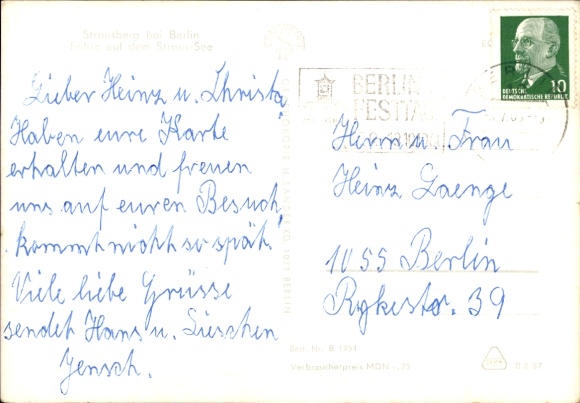 Strausberg bei Berlin
Fähre auf dem Straus-See
Lieber Heinz u. Christa,
Haben eure Karte
erhalten und freuen
uns auf euren Besuch,
kommt nicht so spät.
Viele liebe Grüsse
sendet Hans u. Lieschen
Jensch.
BERLIN
FESTTAGE
10
DEUTSCHE
DEMOKRATISCHE REPUBLIK
Herrn u. Frau
Heinz Gaenge
1055 Berlin
Rykestr. 39
Best. Nr. B 1954
Verbraucherpreis MDN -,75